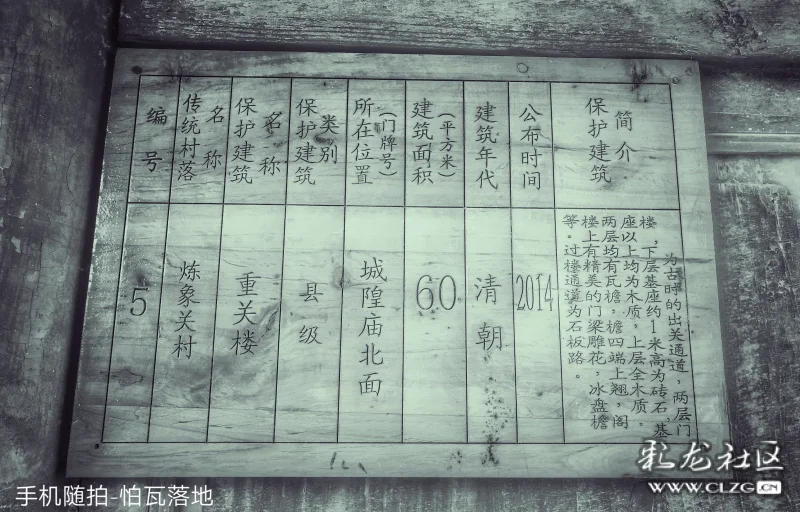 编号
传统村落名称
保护建筑名称
保护建筑类别
所在位置(门牌号)
建筑面积(平方米)
建筑年代
公布时间
保护建筑简介
5
炼象关村
重关楼
县级
城隍庙北面
60
清朝
2014
为古时的出关通道,两层门
楼,下层基座约1米高为砖石,基
座以上均为木质,上层全木质。
两层均有瓦檐,檐四端上翘,阁
楼上有精美的门梁雕花,冰盘檐
等。过楼通道为石板路。
彩龙社区
WWW.CLZG.CN
手机随拍-怕瓦落地